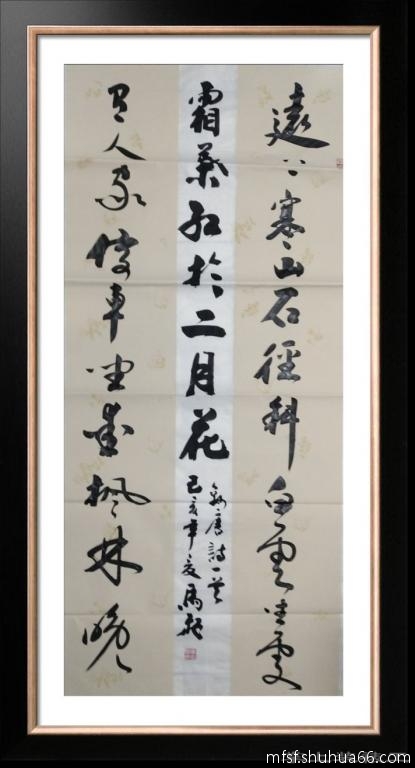 遠上寒山石徑斜白雲生處
有人家停車坐愛楓林晚
霜葉紅於二月花
錄唐詩一首
己亥年夏馬
mfsf.shuhua66.com